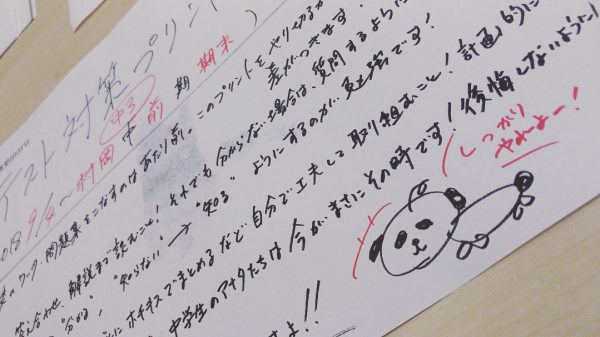 テスト対策プリント
2018 9/4〜 村岡中 中3 前期 期末
のワーク、問題集をこなすのはあたり前。このプリントをやり切るか
差がつきます。
答え合わせ、解説まで読むこと!それでも分からない場合は、質問するように
"分かる"、"知らない"→"知る"ようにするのが勉強です!
ごとにホチキスでまとめるなど自分で工夫して取り組むこと!計画的に
中学生のアナタたちは今がまさにその時です!後悔しないように!
すよ!!
しっかり
やれよー!